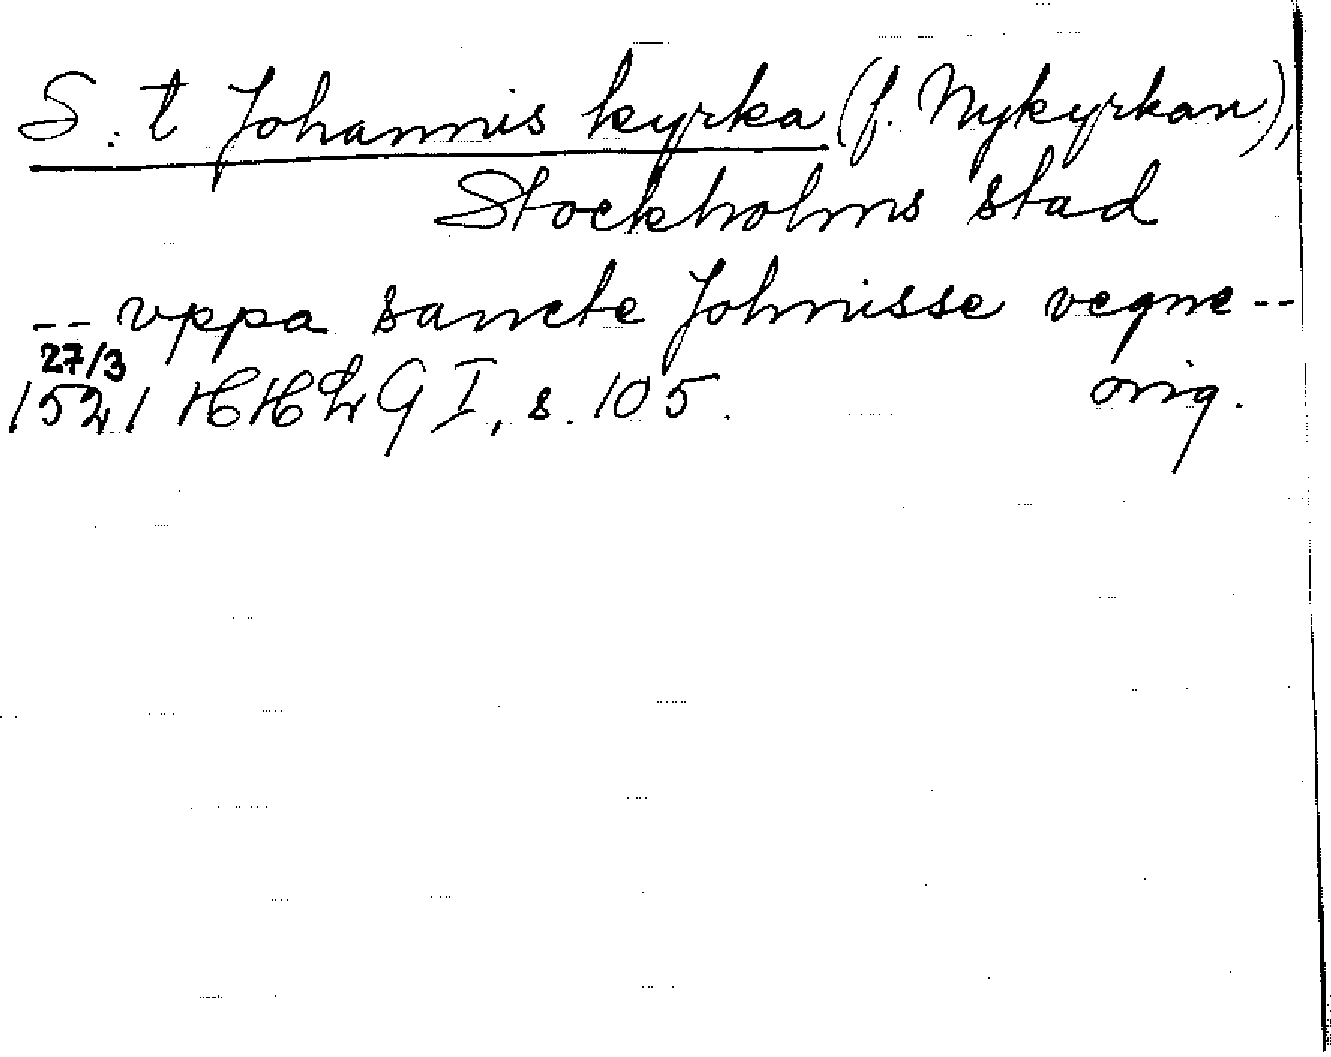 S:t Johannis kyrka (f. Nykyrkan),
Stockholms stad
-- vppa sancte Johnisse vegne --
27/3
1521 HHLG I, s. 105. orig.